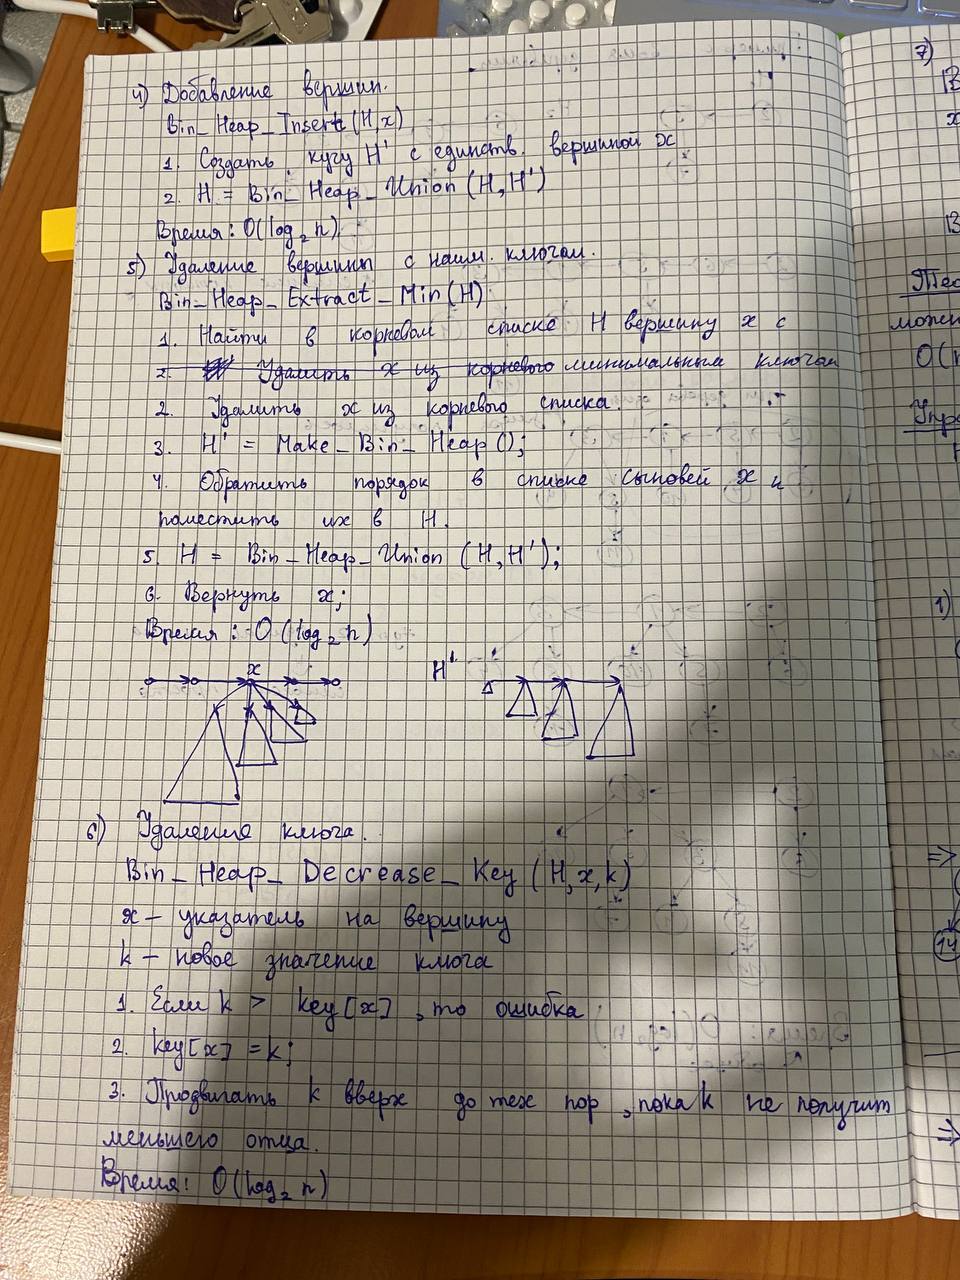 4) Добавление вершин.
Bin_Heap_Insert(H,x)
1. Создать кучу H' с единств. вершиной x
2. H = Bin_Heap_Union(H,H')
Время: O(log₂n)
5) Удаление вершины с наим. ключом.
Bin_Heap_Extract_Min(H)
1. Найти в корневом списке H вершину x с
2. Удалить x из корневого минимальным ключом
2. Удалить x из корневого списка.
3. H' = Make_Bin_Heap();
4. Обратить порядок в списке сыновей x и
поместить их в H.
5. H = Bin_Heap_Union(H,H');
6. Вернуть x;
Время: O(log₂n)
x
H'
6) Удаление ключа.
Bin_Heap_Decrease_Key(H,x,k)
x – указатель на вершину
k – новое значение ключа
1. Если k > key[x], то ошибка
2. key[x] = k;
3. Продвигать k вверх до тех пор, пока k не получит
меньшего отца.
Время: O(log₂n)
7)
В
x
В
можем
1)
=>
14
=>